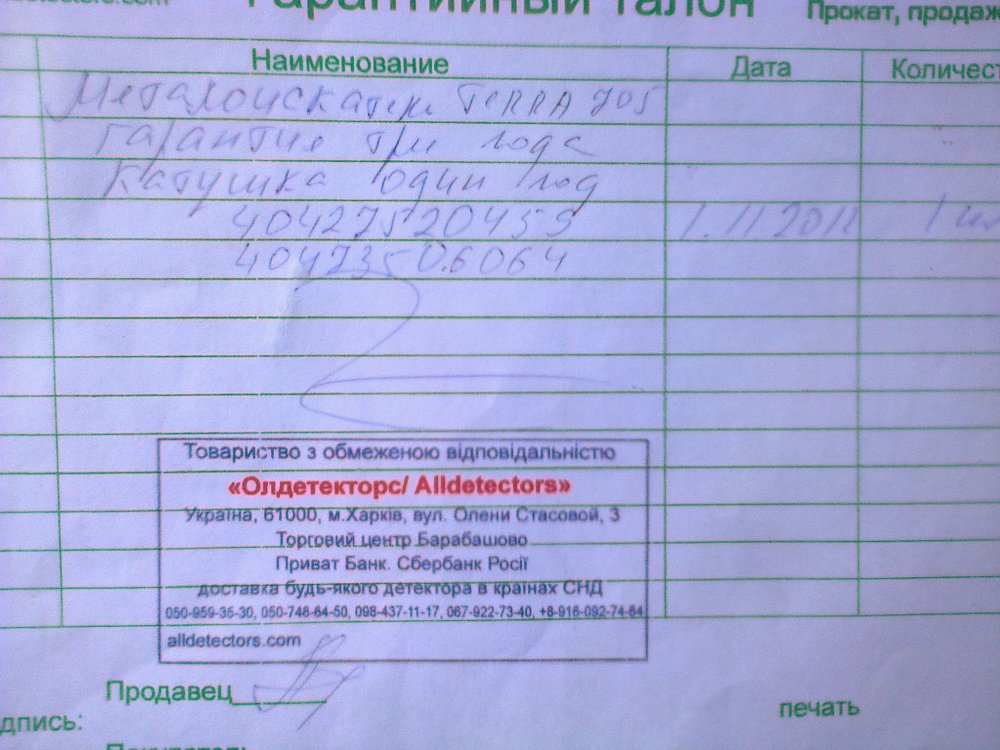 Гарантийный талон
Прокат, продаж
Наименование Дата Количест
Металоискатель TERRA 705
гарантия три года
катушка один год
40427520455 1.11.2011 1
40473506064
Товариство з обмеженою відповідальністю
«Олдетекторс/ Alldetectors»
Україна, 61000, м.Харків, вул. Олени Стасовой, 3
Торговий центр Барабашово
Приват Банк. Сбербанк Росії
доставка будь-якого детектора в країнах СНД
050-959-35-30, 050-748-64-50, 098-437-11-17, 067-922-73-40, +8-916-092-74-64
alldetectors.com
Продавец
дпись: печать
Покупатель